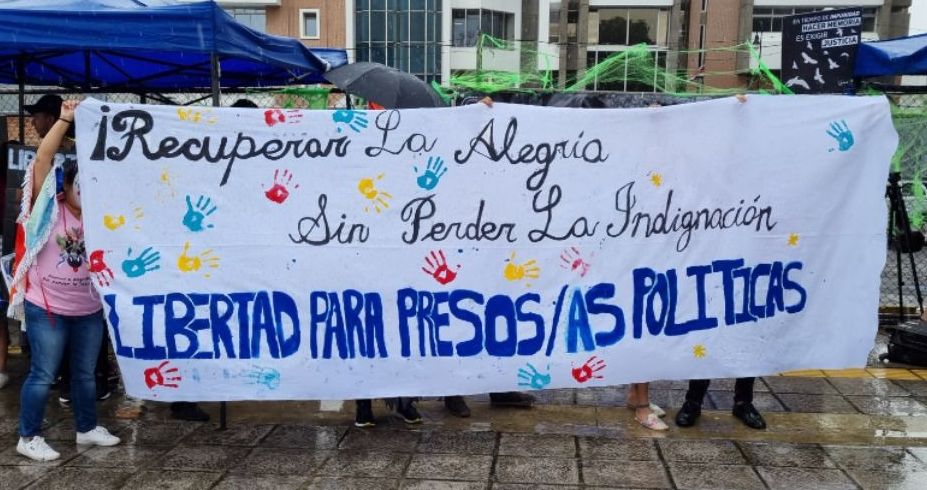 EN TIEMPO DE IMPUNIDAD
HACER MEMORIA
ES EXIGIR
JUSTICIA
¡Recuperar La Alegría
Sin Perder La Indignación
LIBERTAD PARA PRESOS/AS POLITICAS